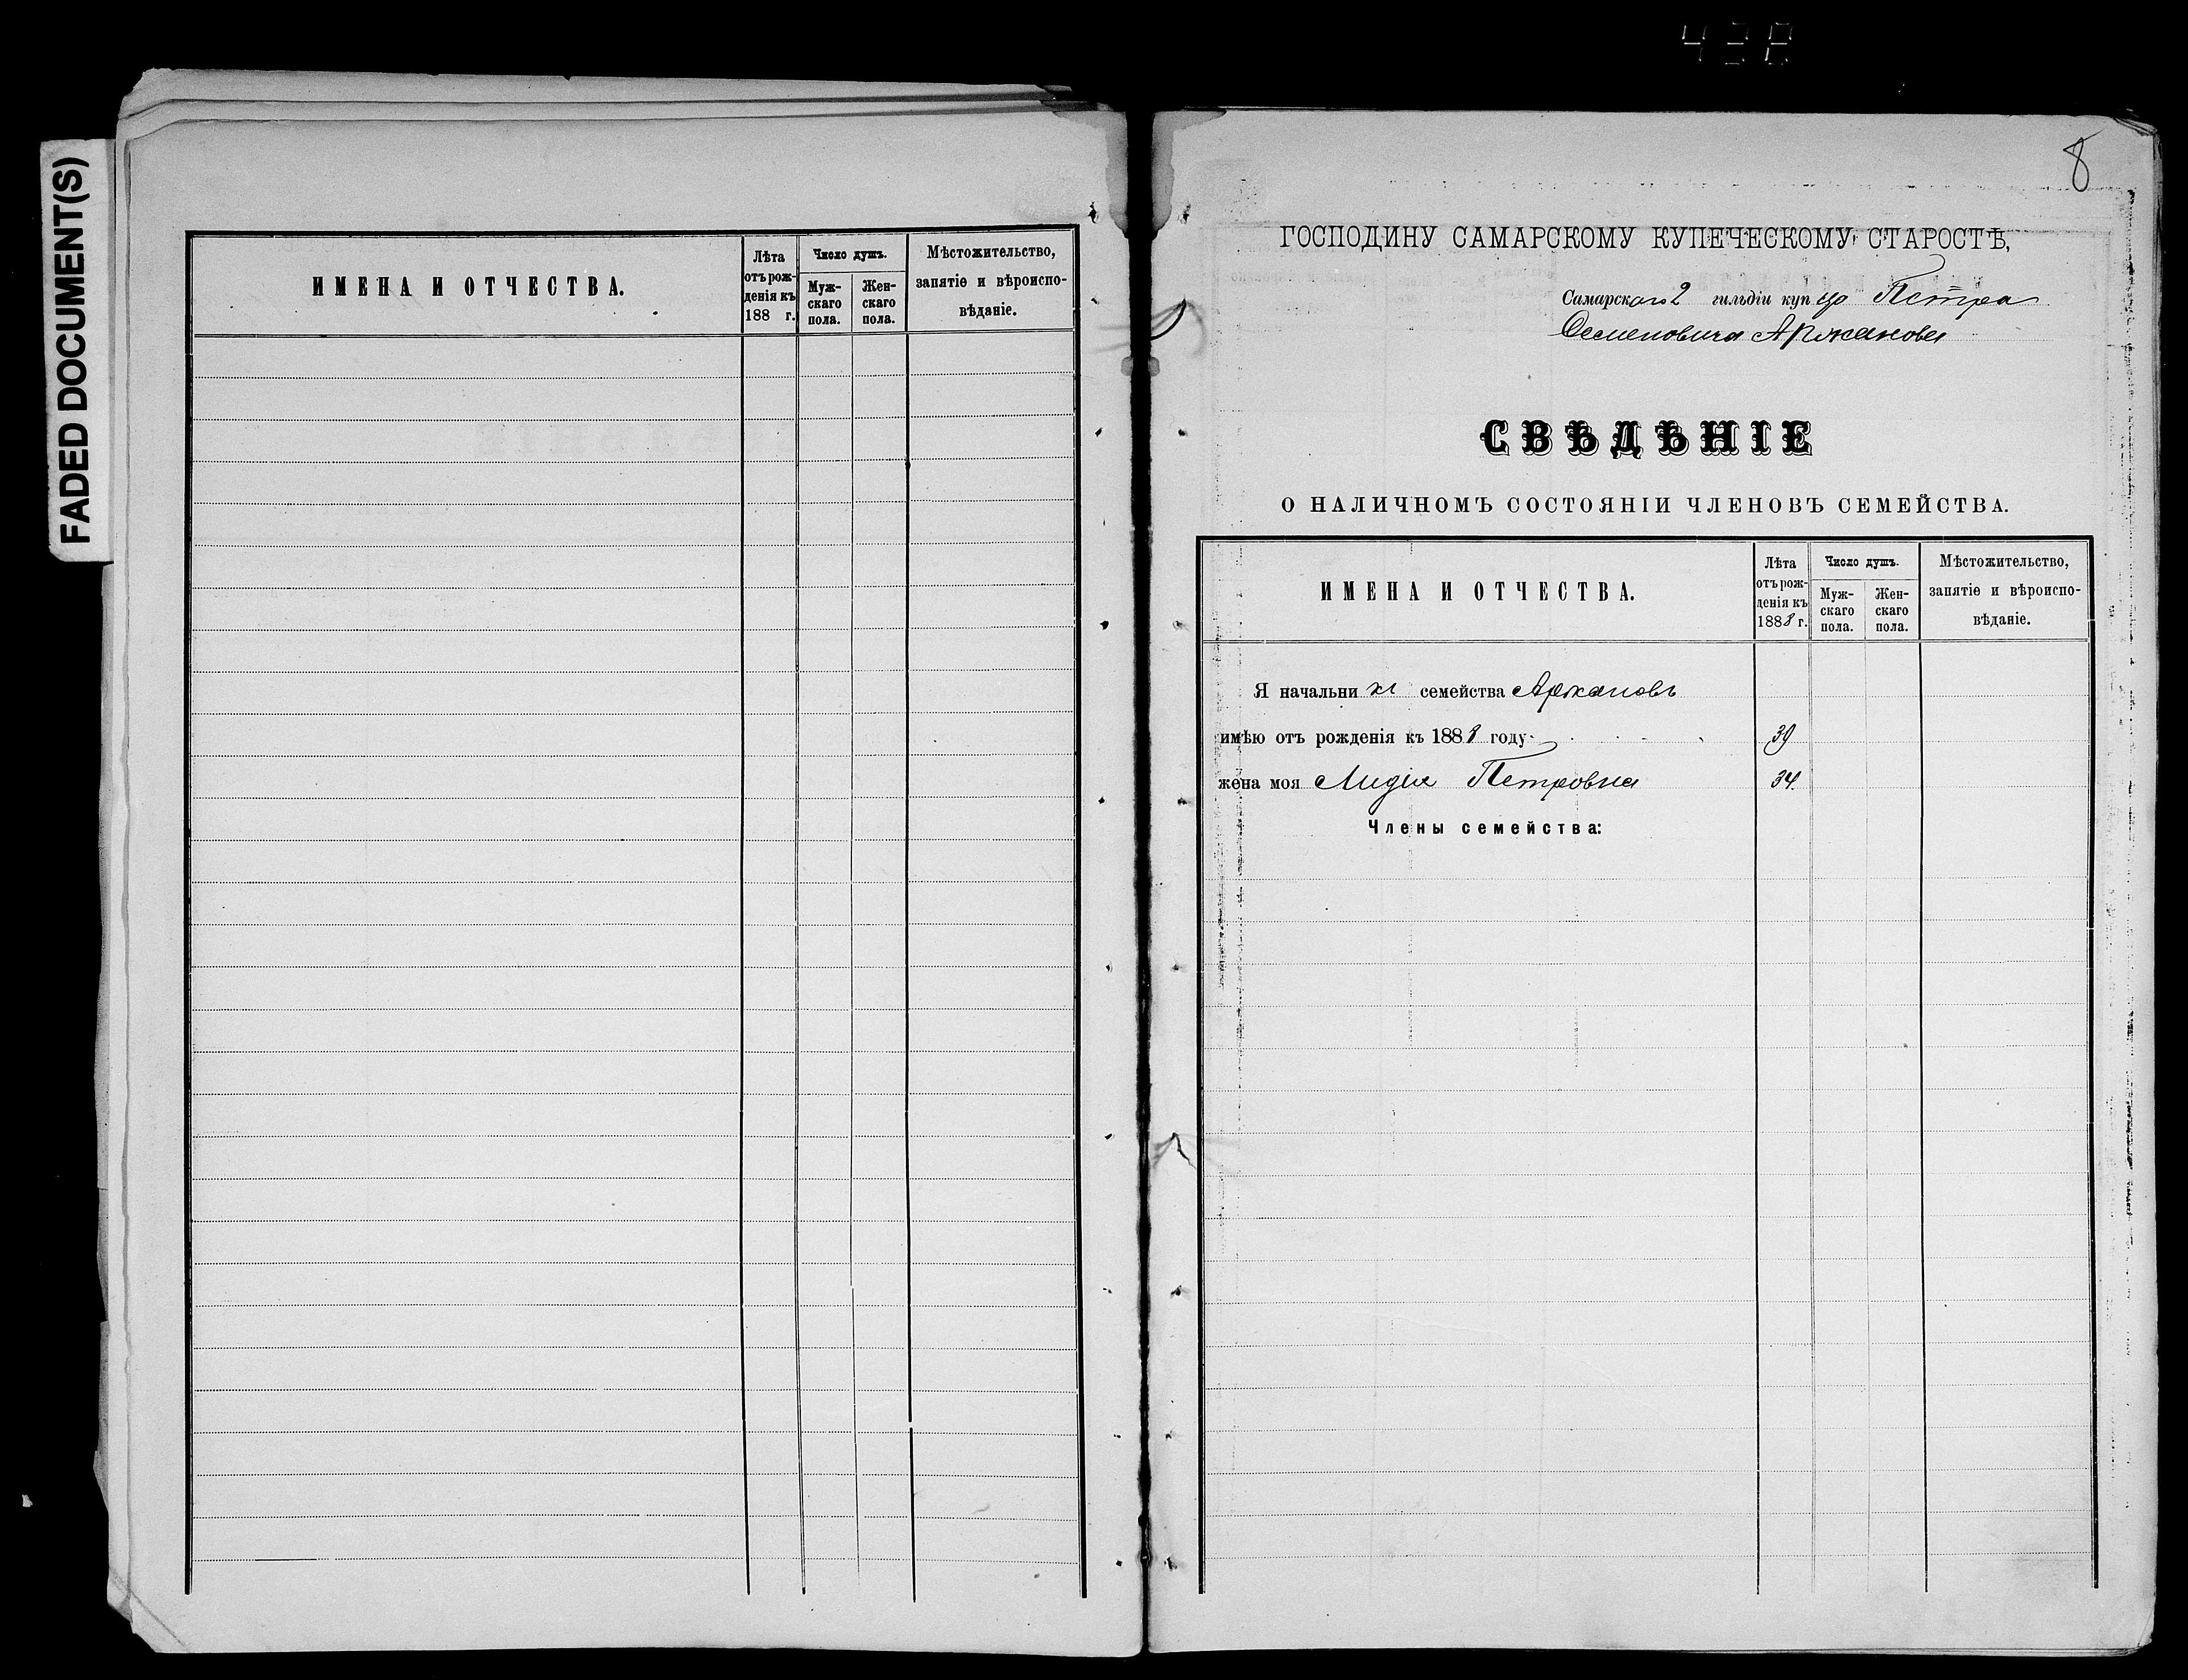 438
FADED DOCUMENT(S)
ИМЕНА И ОТЧЕСТВА.
Лѣта
отърож-
денія къ
188 г.
Число душъ.
Муж-
скаго
пола.
Жен-
скаго
пола.
Мѣстожительство,
занятіе и вѣроиспо-
вѣданіе.
8
ГОСПОДИНУ САМАРСКОМУ КУПЕЧЕСКОМУ СТАРОСТѢ,
Самарскаго 2 гильдіи купца Петра
Семеновича Аржанова
СВѢДѢНІЕ
О НАЛИЧНОМЪ СОСТОЯНІИ ЧЛЕНОВЪ СЕМЕЙСТВА.
ИМЕНА И ОТЧЕСТВА.
Лѣта
отърож-
денія къ
1888 г.
Число душъ.
Муж-
скаго
пола.
Жен-
скаго
пола.
Мѣстожительство,
занятіе и вѣроиспо-
вѣданіе.
Я начальникъ семейства Аржановъ
имѣю отъ рожденія къ 1888 году 39
жена моя Лидія Петровна 34.
Члены семейства: